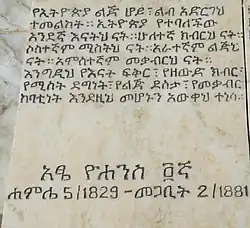 የኢትዮጵያ ልጅ ሆይ፤ ልብ አድርገህ
ተመልከት። ኢትዮጵያ የተባለችው
አንደኛ እናትህ ናት።ሁለተኛ ክብርህ ናት።
ሶስተኛም ሚስትህ ናት።አራተኛም ልጅህ
ናት።አምስተኛም መቃብርህ ናት።
እንግዲህ የእናት ፍቅር፣የዘውድ ክብር፣
የሚስት ደግነት፣የልጅ ደስታ፣የመቃብር
ከባቲነት እንደዚህ መሆኑን አውቀህ ተነሳ።
አፄ ዮሐንስ ፬ኛ
ሐምሌ 5/1829 - መጋቢት 2/1881